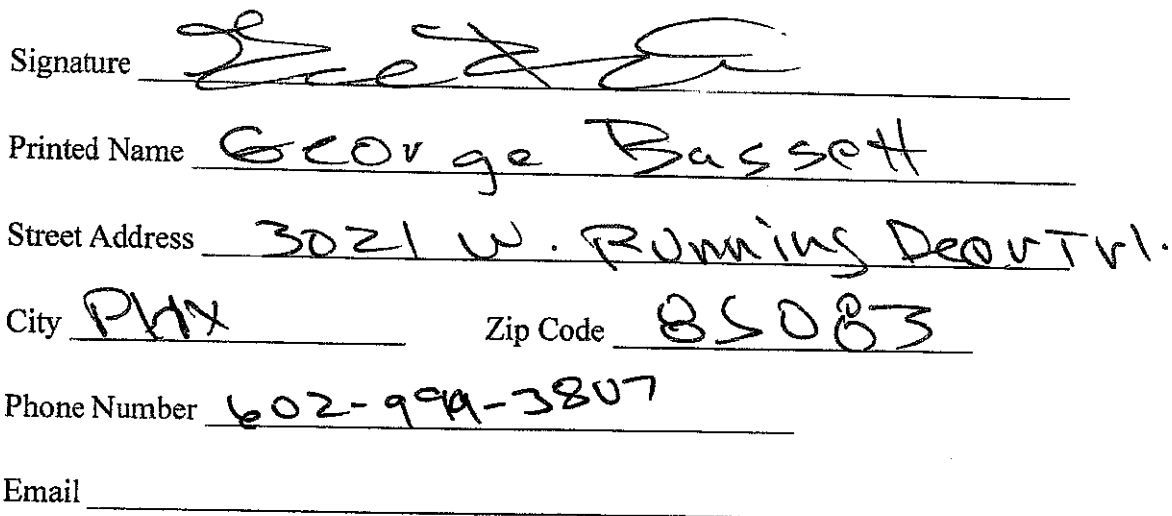 Signature
Printed Name George Bassett
Street Address 3021 W. Running Deer Trl.
City PHX Zip Code 85083
Phone Number 602-999-3807
Email